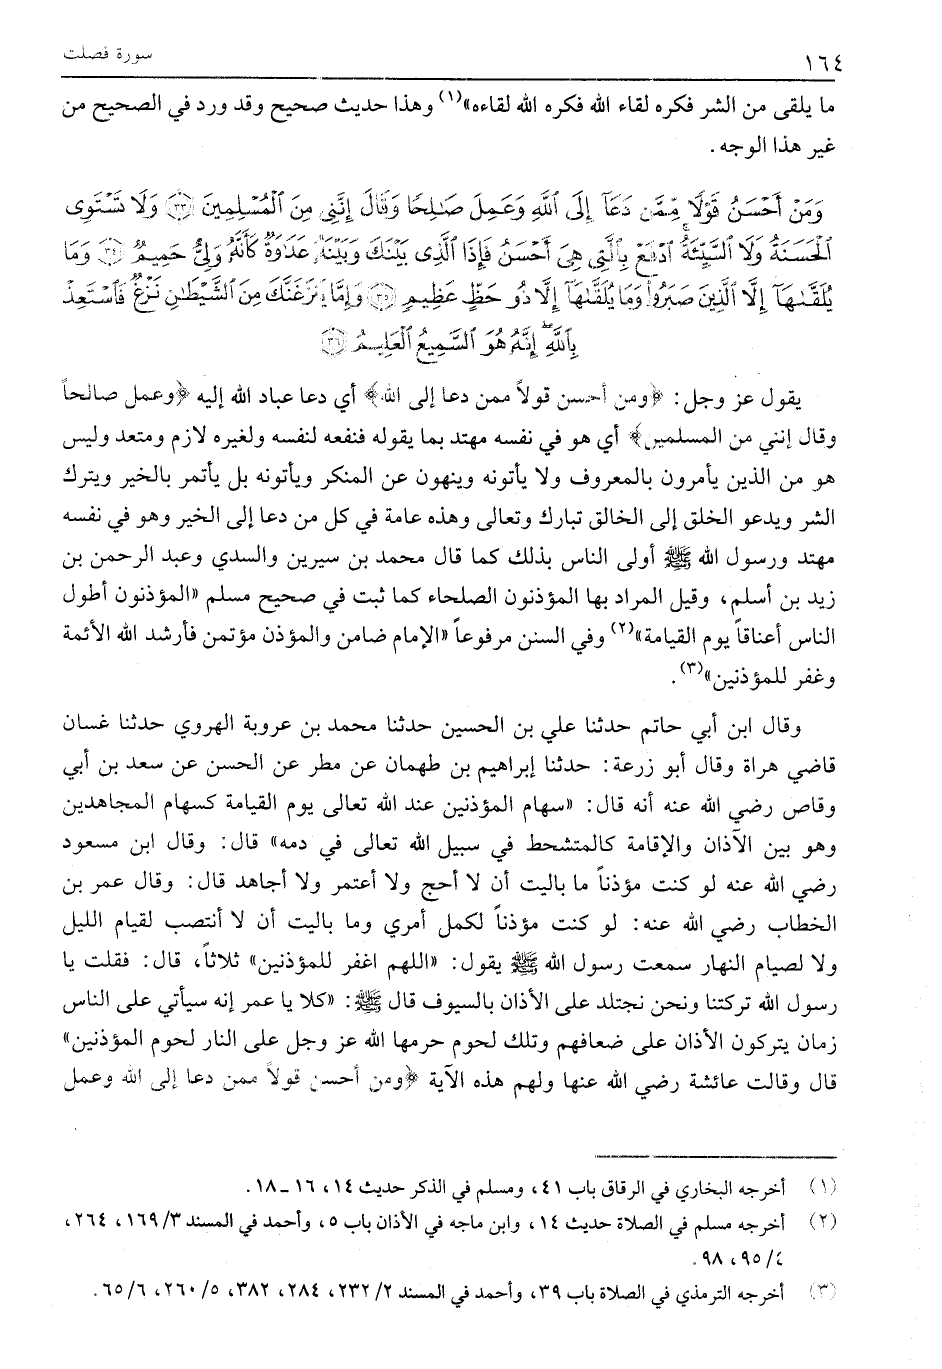 ١٦٤
سورة فصلت
ما يلقى من الشر فكره لقاء الله فكره الله لقاءه»(١) وهذا حديث صحيح وقد ورد في الصحيح من
غير هذا الوجه.
وَمَنْ أَحْسَنُ قَوْلًا مِّمَّن دَعَآ إِلَى ٱللَّهِ وَعَمِلَ صَٰلِحًا وَقَالَ إِنَّنِي مِنَ ٱلْمُسْلِمِينَ ﴿٣٣﴾ وَلَا تَسْتَوِى
ٱلْحَسَنَةُ وَلَا ٱلسَّيِّئَةُ ٱدْفَعْ بِٱلَّتِى هِىَ أَحْسَنُ فَإِذَا ٱلَّذِى بَيْنَكَ وَبَيْنَهُۥ عَدَٰوَةٌ كَأَنَّهُۥ وَلِىٌّ حَمِيمٌ ﴿٣٤﴾ وَمَا
يُلَقَّىٰهَآ إِلَّا ٱلَّذِينَ صَبَرُوا۟ وَمَا يُلَقَّىٰهَآ إِلَّا ذُو حَظٍّ عَظِيمٍ ﴿٣٥﴾ وَإِمَّا يَنزَغَنَّكَ مِنَ ٱلشَّيْطَٰنِ نَزْغٌ فَٱسْتَعِذْ
بِٱللَّهِ إِنَّهُۥ هُوَ ٱلسَّمِيعُ ٱلْعَلِيمُ ﴿٣٦﴾
يقول عز وجل: ﴿ومن أحسن قولاً ممن دعا إلى الله﴾ أي دعا عباد الله إليه ﴿وعمل صالحاً
وقال إنني من المسلمين﴾ أي هو في نفسه مهتد بما يقوله فنفعه لنفسه ولغيره لازم ومتعد وليس
هو من الذين يأمرون بالمعروف ولا يأتونه وينهون عن المنكر ويأتونه بل يأتمر بالخير ويترك
الشر ويدعو الخلق إلى الخالق تبارك وتعالى وهذه عامة في كل من دعا إلى الخير وهو في نفسه
مهتد ورسول الله ﷺ أولى الناس بذلك كما قال محمد بن سيرين والسدي وعبد الرحمن بن
زيد بن أسلم، وقيل المراد بها المؤذنون الصلحاء كما ثبت في صحيح مسلم «المؤذنون أطول
الناس أعناقاً يوم القيامة»(٢) وفي السنن مرفوعاً «الإمام ضامن والمؤذن مؤتمن فأرشد الله الأئمة
وغفر للمؤذنين»(٣).
وقال ابن أبي حاتم حدثنا علي بن الحسين حدثنا محمد بن عروبة الهروي حدثنا غسان
قاضي هراة وقال أبو زرعة: حدثنا إبراهيم بن طهمان عن مطر عن الحسن عن سعد بن أبي
وقاص رضي الله عنه أنه قال: «سهام المؤذنين عند الله تعالى يوم القيامة كسهام المجاهدين
وهو بين الأذان والإقامة كالمتشحط في سبيل الله تعالى في دمه» قال: وقال ابن مسعود
رضي الله عنه لو كنت مؤذناً ما باليت أن لا أحج ولا أعتمر ولا أجاهد قال: وقال عمر بن
الخطاب رضي الله عنه: لو كنت مؤذناً لكمل أمري وما باليت أن لا أنتصب لقيام الليل
ولا لصيام النهار سمعت رسول الله ﷺ يقول: «اللهم اغفر للمؤذنين» ثلاثاً، قال: فقلت يا
رسول الله تركتنا ونحن نجتلد على الأذان بالسيوف قال ﷺ: «كلا يا عمر إنه سيأتي على الناس
زمان يتركون الأذان على ضعافهم وتلك لحوم حرمها الله عز وجل على النار لحوم المؤذنين»
قال وقالت عائشة رضي الله عنها ولهم هذه الآية ﴿ومن أحسن قولاً ممن دعا إلى الله وعمل
(١) أخرجه البخاري في الرقاق باب ٤١، ومسلم في الذكر حديث ١٤، ١٦ ـ ١٨.
(٢) أخرجه مسلم في الصلاة حديث ١٤، وابن ماجه في الأذان باب ٥، وأحمد في المسند ٣/ ١٦٩، ٢٦٤،
٤/ ٩٥، ٩٨.
(٣) أخرجه الترمذي في الصلاة باب ٣٩، وأحمد في المسند ٢/ ٢٣٢، ٢٨٤، ٣٨٢، ٥/ ٢٦٠، ٦/ ٦٥.